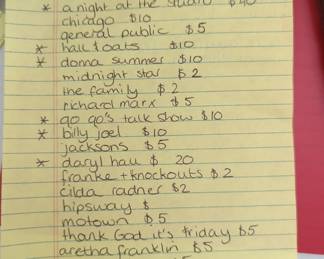 * a night at the studio $40
chicago $10
general public $5
* hall & oats $10
* donna summer $10
midnight star $2
the family $2
richard marx $5
* go go's talk show $10
* billy joel $10
jacksons $5
* daryl hall $ 20
franke + knockouts $2
Gilda radner $2
hipsway $
motown $5
thank God it's friday $5
aretha franklin $5